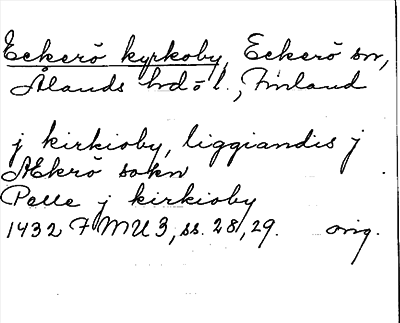 Eckerö kyrkoby, Eckerö sn,
Ålands hd o l., Finland
j kirkioby, liggiandis j
Ækrö sokn
Pelle j kirkioby
1432 FMU 3, ss. 28, 29. orig.